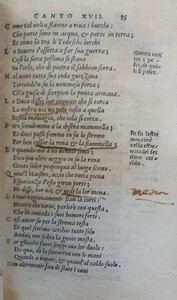 CANTO XVII. 95
Come tal uolta stanno a riua i burchi,
Che parte sono in acqua, et parte in terra;
Et come la tra li Tedeschi lurchi
Lo beuero s'assetta a far sua guerra;
Cosi la fiera pessima si staua
Su l'orlo, che di pietra il sabbion serra.
Nel uano tutta sua coda guizzaua
Torcendo'n su la uenenosa forca,
Ch'a guisa di scorpion la punta armaua.
Lo Duca disse; hor conuien che si torca
La nostra uia un poco infin a quella
Bestia maluagia, che colà si corca.
Pero scendemmo a la destra mammella,
Et dieci passi femmo in su lo stremo
Per ben cessar la rena et la fiammella:
Et quando noi a lei uenuti semo;
Poco piu oltre ueggio in su la rena
Gente seder propinqua al luogo scemo.
Quiui'l Maestro, accio che tutta piena
Esperienza d'esto giron porti;
Mi disse, hor ua, et uedi la lor mena.
Li tuoi ragionamenti sian la corti:
Mentre che torni parlero con questa,
Che ne conceda i suoi homeri forti.
Cosi anchor su per la strema testa
Di quel settimo cerchio tutto solo
Andai, oue sedea la gente mesta.
Per gliocchi fuori scoppiaua lor duolo:
Di qua, di la soccorrien con le mani
Quando a uapori, et quando al caldo suolo.
Non altrimenti fan di state i cani